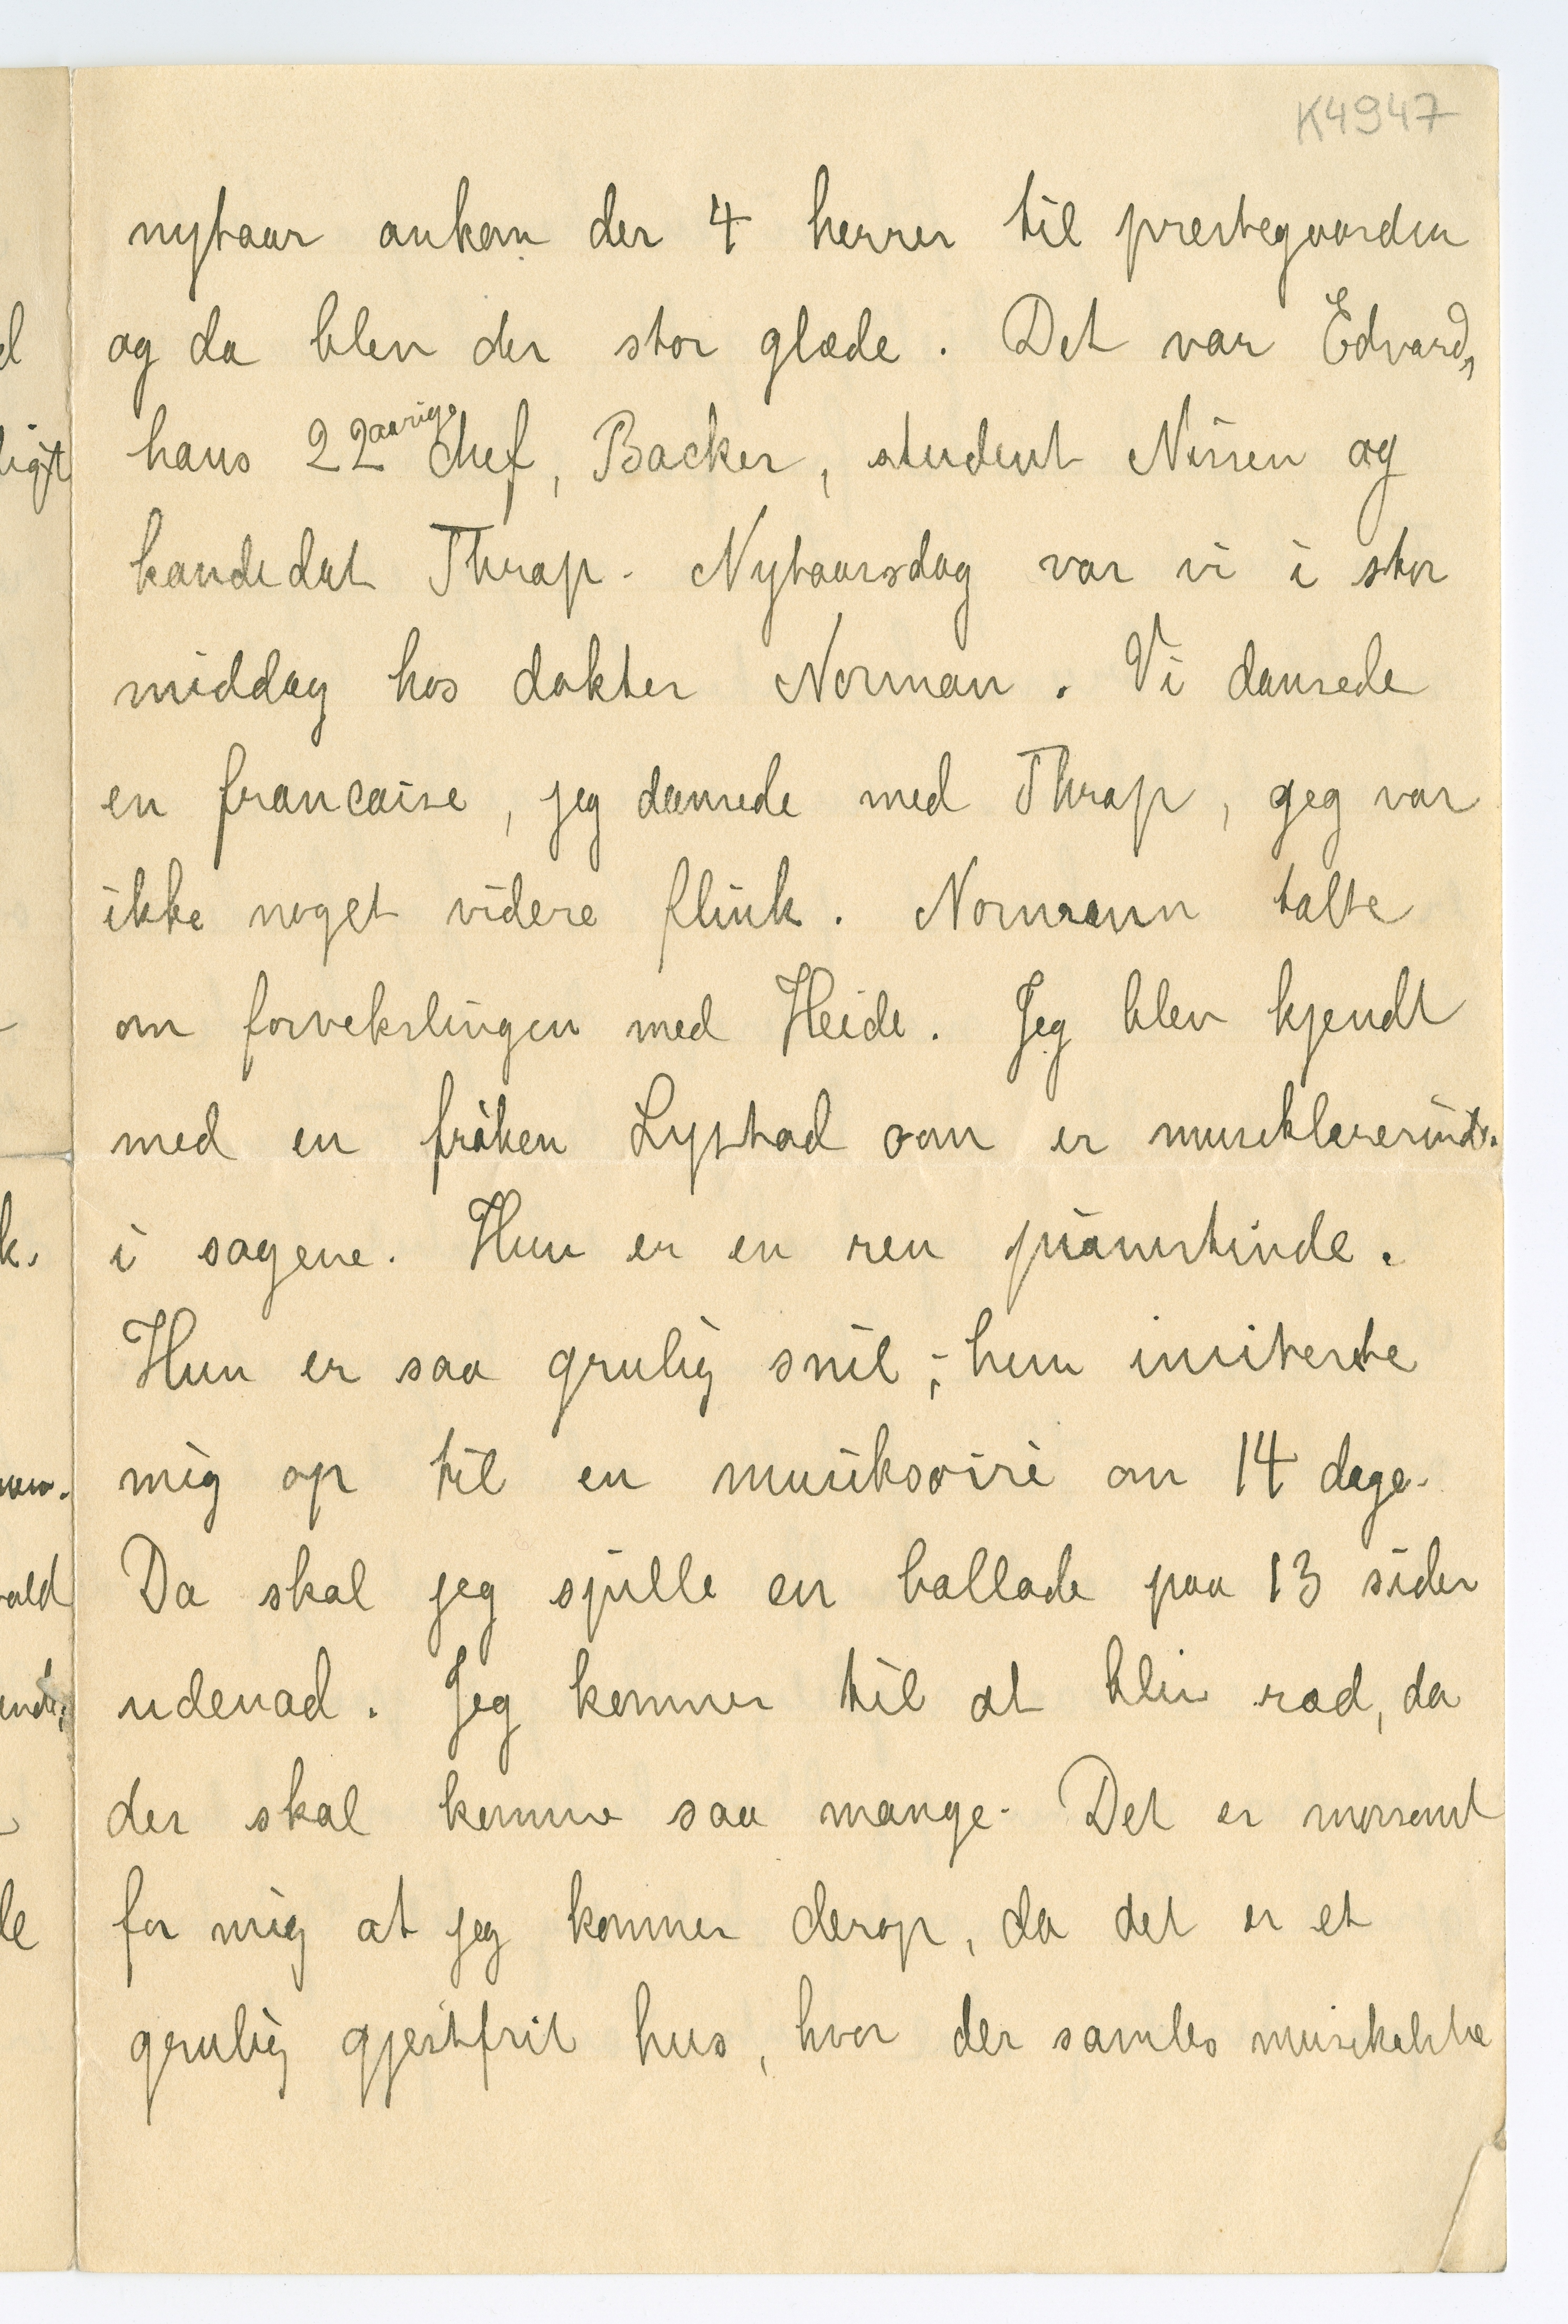 K4947
nytaar ankom der 4 herrer til prestegaarden
og da blev der stor glæde. Det var Edvard,
hans 22aarige chef, Backer, student Nissen og
kandidat Thrap. Nytaarsdag var vi i stor
middag hos dokter Norman. Vi dansede
en francaise, jeg dansede med Thrap, jeg var
ikke noget videre flink. Normann talte
om forvekslingen med Heide. Jeg blev kjendt
med en frøken Lystad som er musiklærerinde
i sagene. Hun er en ren pianistinde.
Hun er saa grulig snil; hun inviterte
mig op til en musiksoiré om 14 dage.
Da skal jeg spille en ballade paa 13 sider
udenad. Jeg kommer til at bliv ræd, da
der skal komme saa mange. Det er morsomt
for mig at jeg kommer derop, da det er et
grulig gjestfrit hus, hvor der samles musikalske